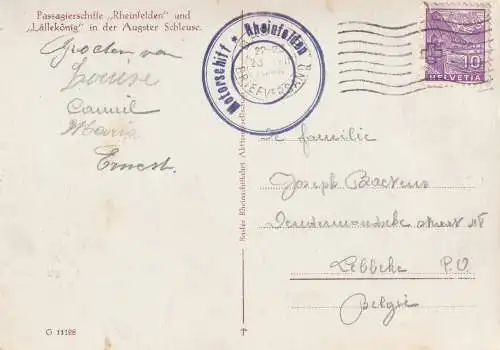 Passagierschiffe „Rheinfelden" und
„Lällekönig" in der Augster Schleuse.
Groeten van
Louise
Camiel
Maria
Ernest.
Motorschiff * Rheinfelden
BRIEFVERSAND
10
HELVETIA
De familie
Joseph Baetens
Dendermondsche straat
Lebbeke P.O.
België
Basler Rheinschiffahrt Aktiengesellschaft
G 11188